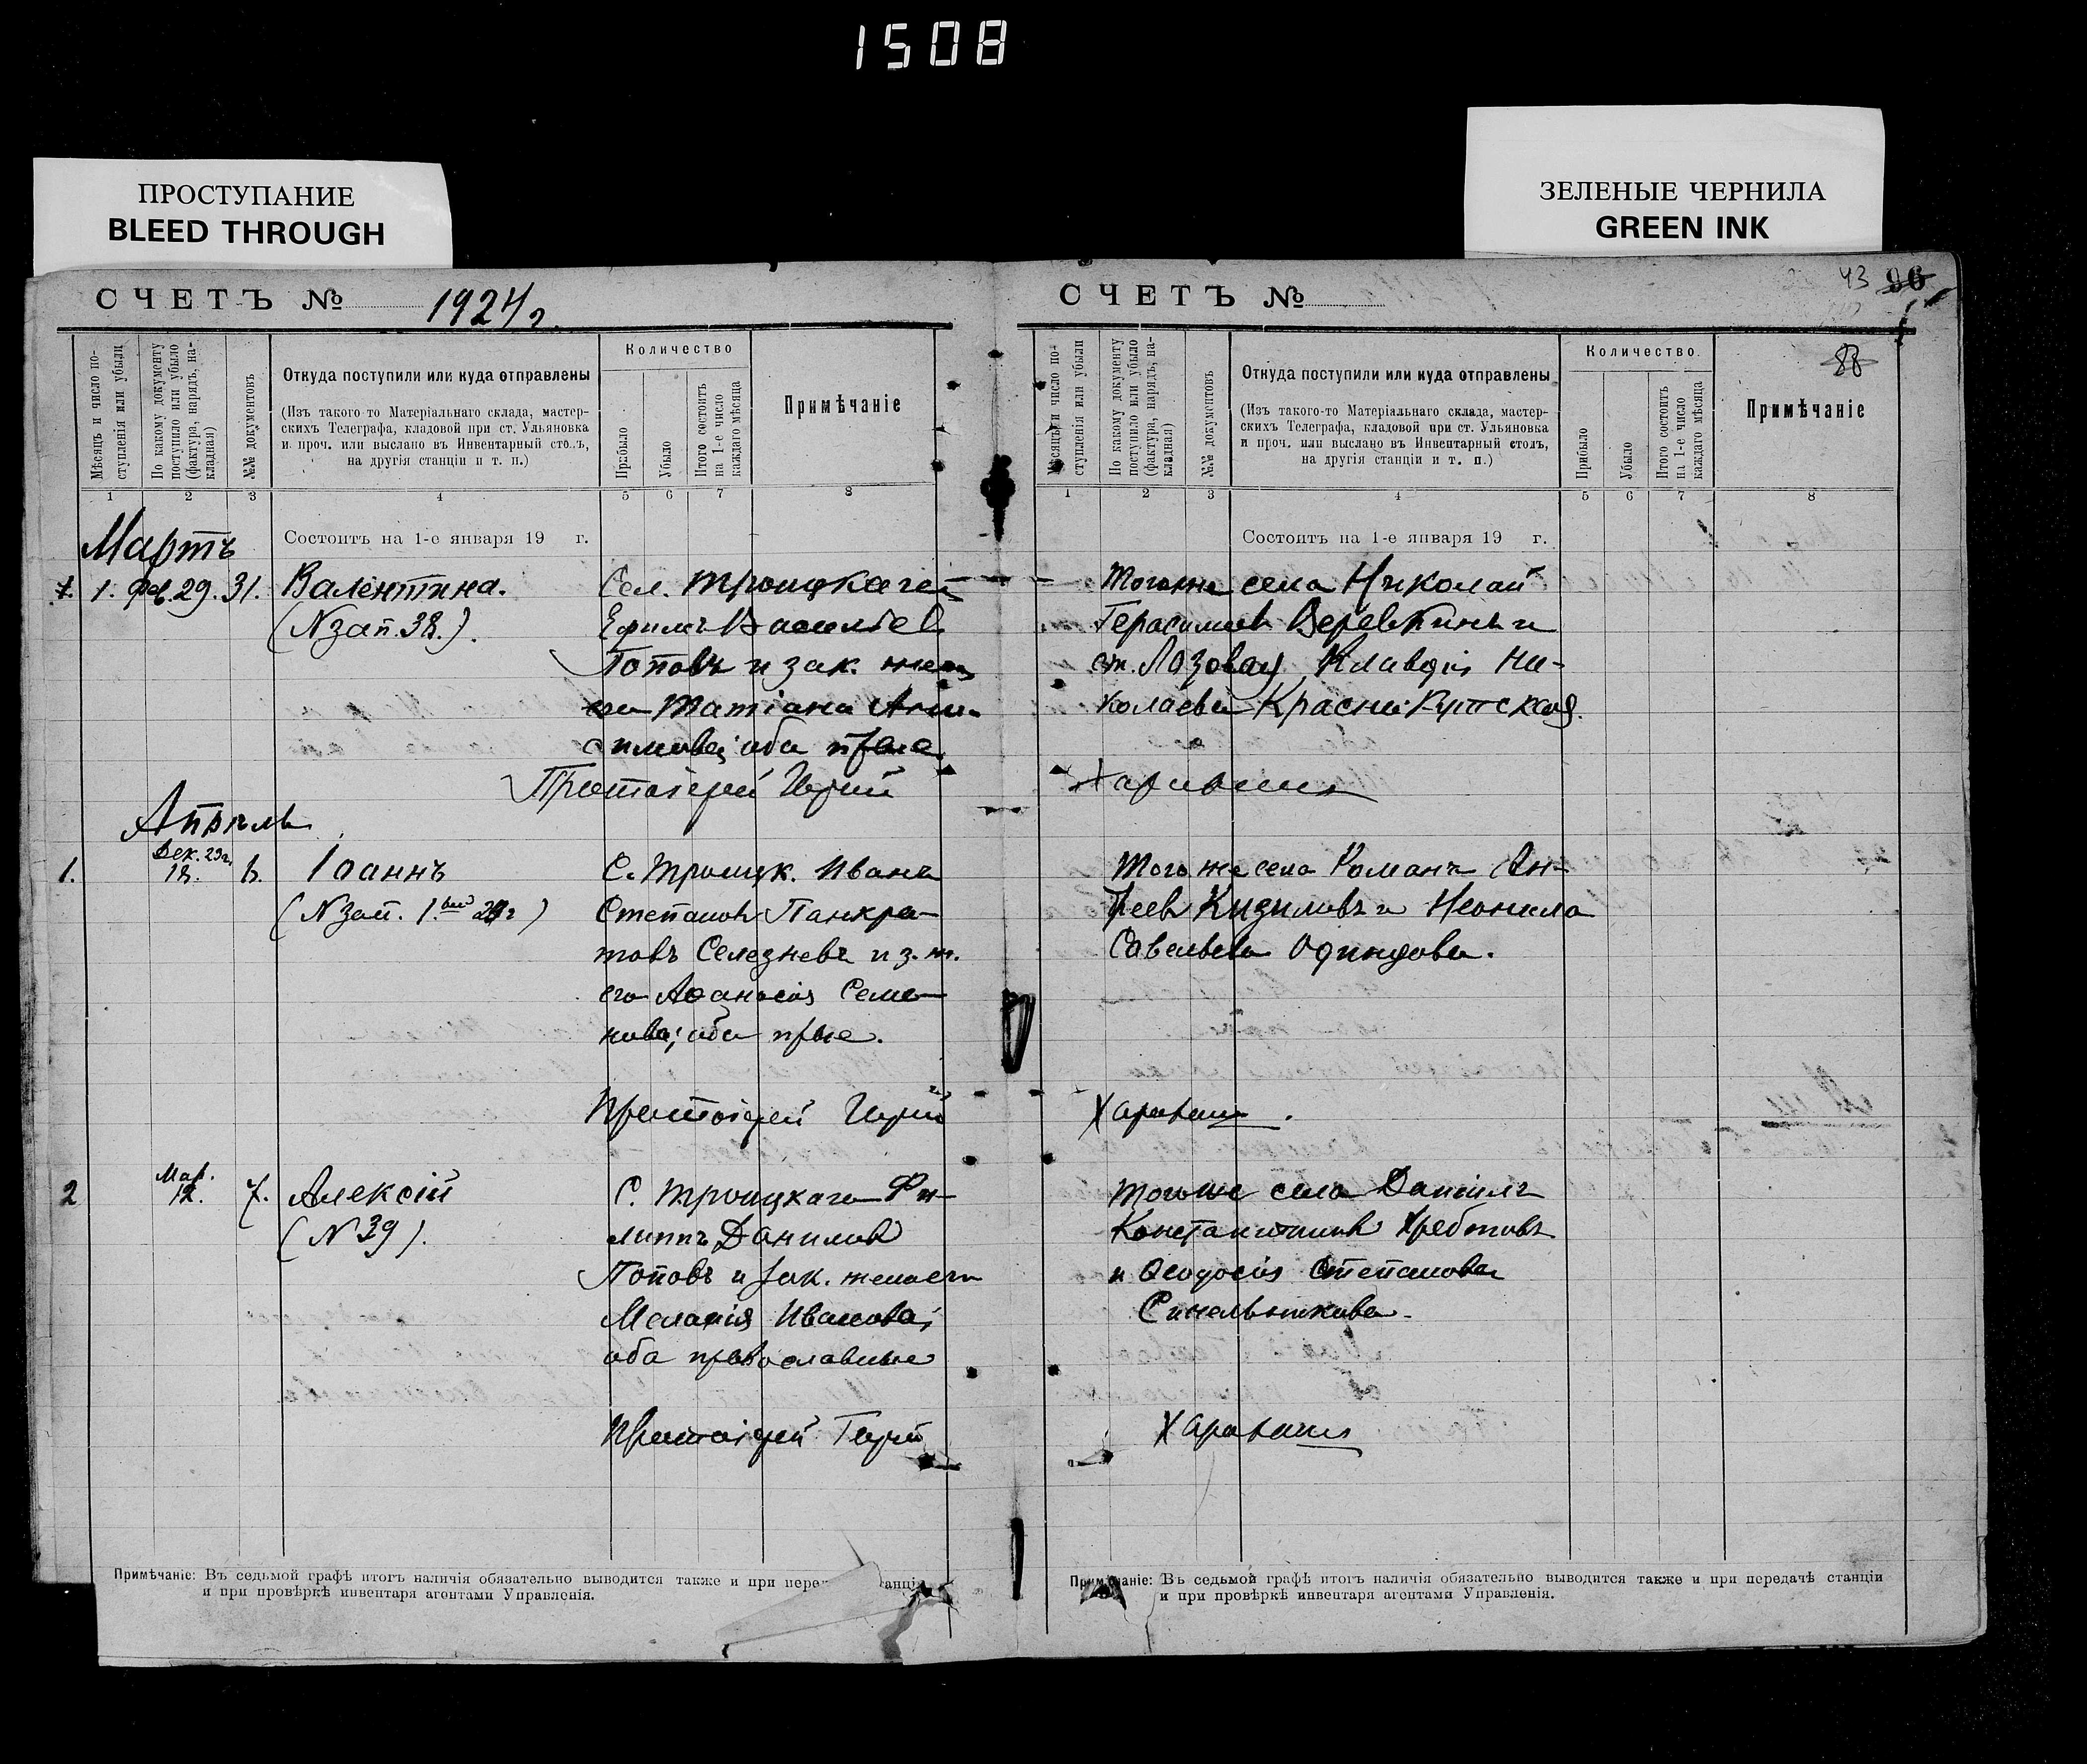 1508
ПРОСТУПАНИЕ
BLEED THROUGH
ЗЕЛЕНЫЕ ЧЕРНИЛА
GREEN INK
СЧЕТЪ № 1924 г.
Мѣсяцъ и число по-
ступленія или убыли
По какому документу
поступило или убыло
(фактура, нарядъ, на-
кладная)
№№ документовъ
Откуда поступили или куда отправлены
(Изъ такого-то Матеріальнаго склада, мастер-
скихъ Телеграфа, кладовой при ст. Ульяновка
и проч. или выслано въ Инвентарный столъ,
на другія станціи и т. п.)
Количество
Прибыло
Убыло
Итого состоитъ
на 1-е число
каждаго мѣсяца
Примѣчаніе
1 2 3 4 5 6 7 8
Мартъ
Состоитъ на 1-е января 19 г.
1. 1. Фев. 29. 31. Валентина.
(N зап. 38.).
Сел. Троицкаго
Ефимъ Васильев
Поповъ и зак. жена
его Татіана
оба
Протоіерей
Апрѣль
1. Дек. 23 г.
18. 6. Іоаннъ
(N зап. 1.
С. Троицк. Иванъ
Степановъ Панкра-
товъ Селезневъ и з. ж.
его Аѳанасія Семе-
нова; оба прые.
Протоіерей
2 Мар.
12. 7. Алексій
(N 39).
С. Троицкаго Фи-
липпъ Данилов
Поповъ и зак. жена его
Меланія Иванова;
оба православные
Протоіерей
СЧЕТЪ №
43 96
88
Мѣсяцъ и число по-
ступленія или убыли
По какому документу
поступило или убыло
(фактура, нарядъ, на-
кладная)
№№ документовъ
Откуда поступили или куда отправлены
(Изъ такого-то Матеріальнаго склада, мастер-
скихъ Телеграфа, кладовой при ст. Ульяновка
и проч. или выслано въ Инвентарный столъ,
на другія станціи и т. п.)
Количество.
Прибыло
Убыло
Итого состоитъ
на 1-е число
каждаго мѣсяца
Примѣчаніе
1 2 3 4 5 6 7 8
Состоитъ на 1-е января 19 г.
Того же села Николай
Герасимов Веревкинъ и
ст. Лозовая Клавдія Ни-
колаева Краснокутская.
Того же села Романъ Ан-
дреев Кизиловъ и Неонила
Савельева Одинцова.
Того же села Даніилъ
Константинов Хребтовъ
и Ѳеодосія Степанова
Синельникова.
Примѣчаніе: Въ седьмой графѣ итогъ наличія обязательно выводится также и при станціи
и при провѣркѣ инвентаря агентами Управленія.
Примѣчаніе: Въ седьмой графѣ итогъ наличія обязательно выводится также и при передачѣ станціи
и при провѣркѣ инвентаря агентами Управленія.